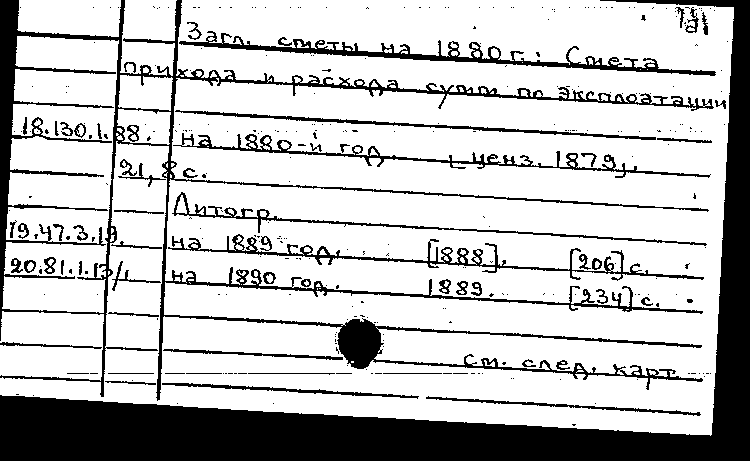 Загл. сметы на 1880 г.: Смета
прихода и расхода сумм по эксплоатации
18.130.1.88. на 1880-й год. [ценз. 1879].
21, 8 с.
Литогр.
19.47.3.19. на 1889 год. [1888]. [206] с.
20.81.1.13/1 на 1890 год. 1889. [234] с.
см. след. карт.